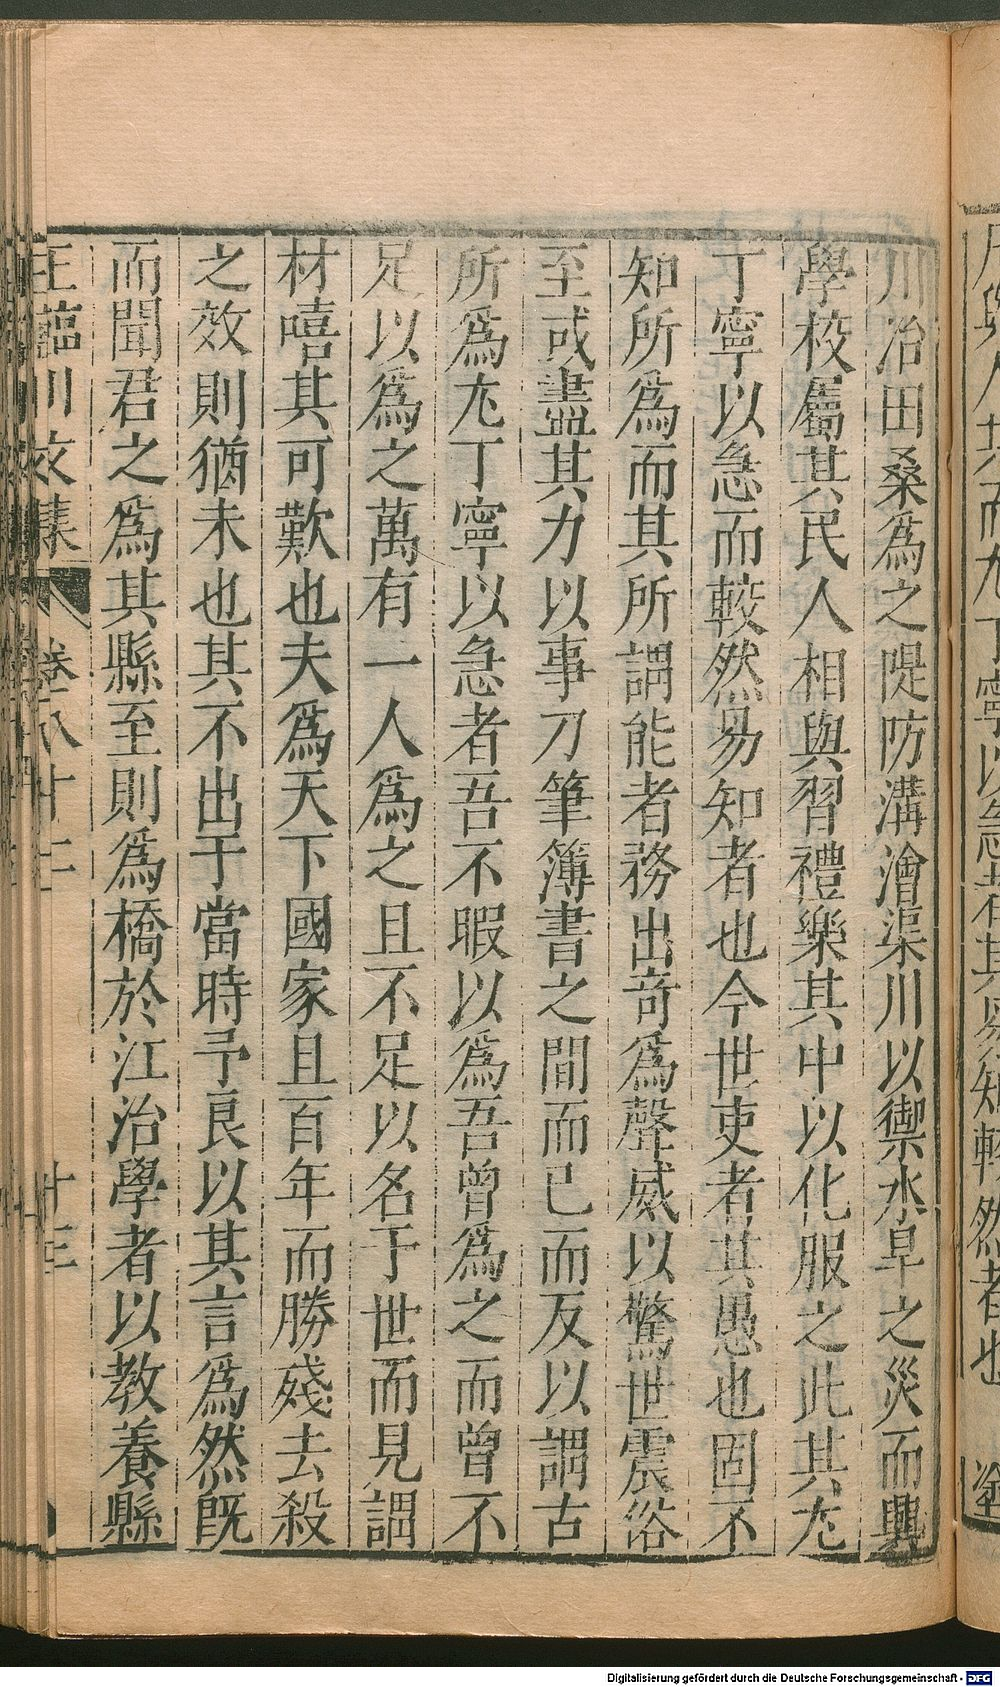 川治田桑爲之隄防溝澮渠川以禦水旱之災而興
學校屬其民人相與習禮樂其中以化服之此其尤
丁寧以急而較然易知者也今世吏者其愚也固不
知所爲而其所謂能者務出奇爲聲威以驚世震俗
至或盡其力以事刀筆簿書之間而已而反以謂古
所爲尤丁寧以急者吾不暇以爲吾曾爲之而曾不
足以爲之萬有一人爲之且不足以名于世而見謂
材嘻其可歎也夫爲天下國家且百年而勝殘去殺
之效則猶未也其不出于當時予良以其言爲然旣
而聞君之爲其縣至則爲橋於江治學者以教養縣
王臨川文集
卷八十二
十三
Digitalisierung gefördert durch die Deutsche Forschungsgemeinschaft - DFG